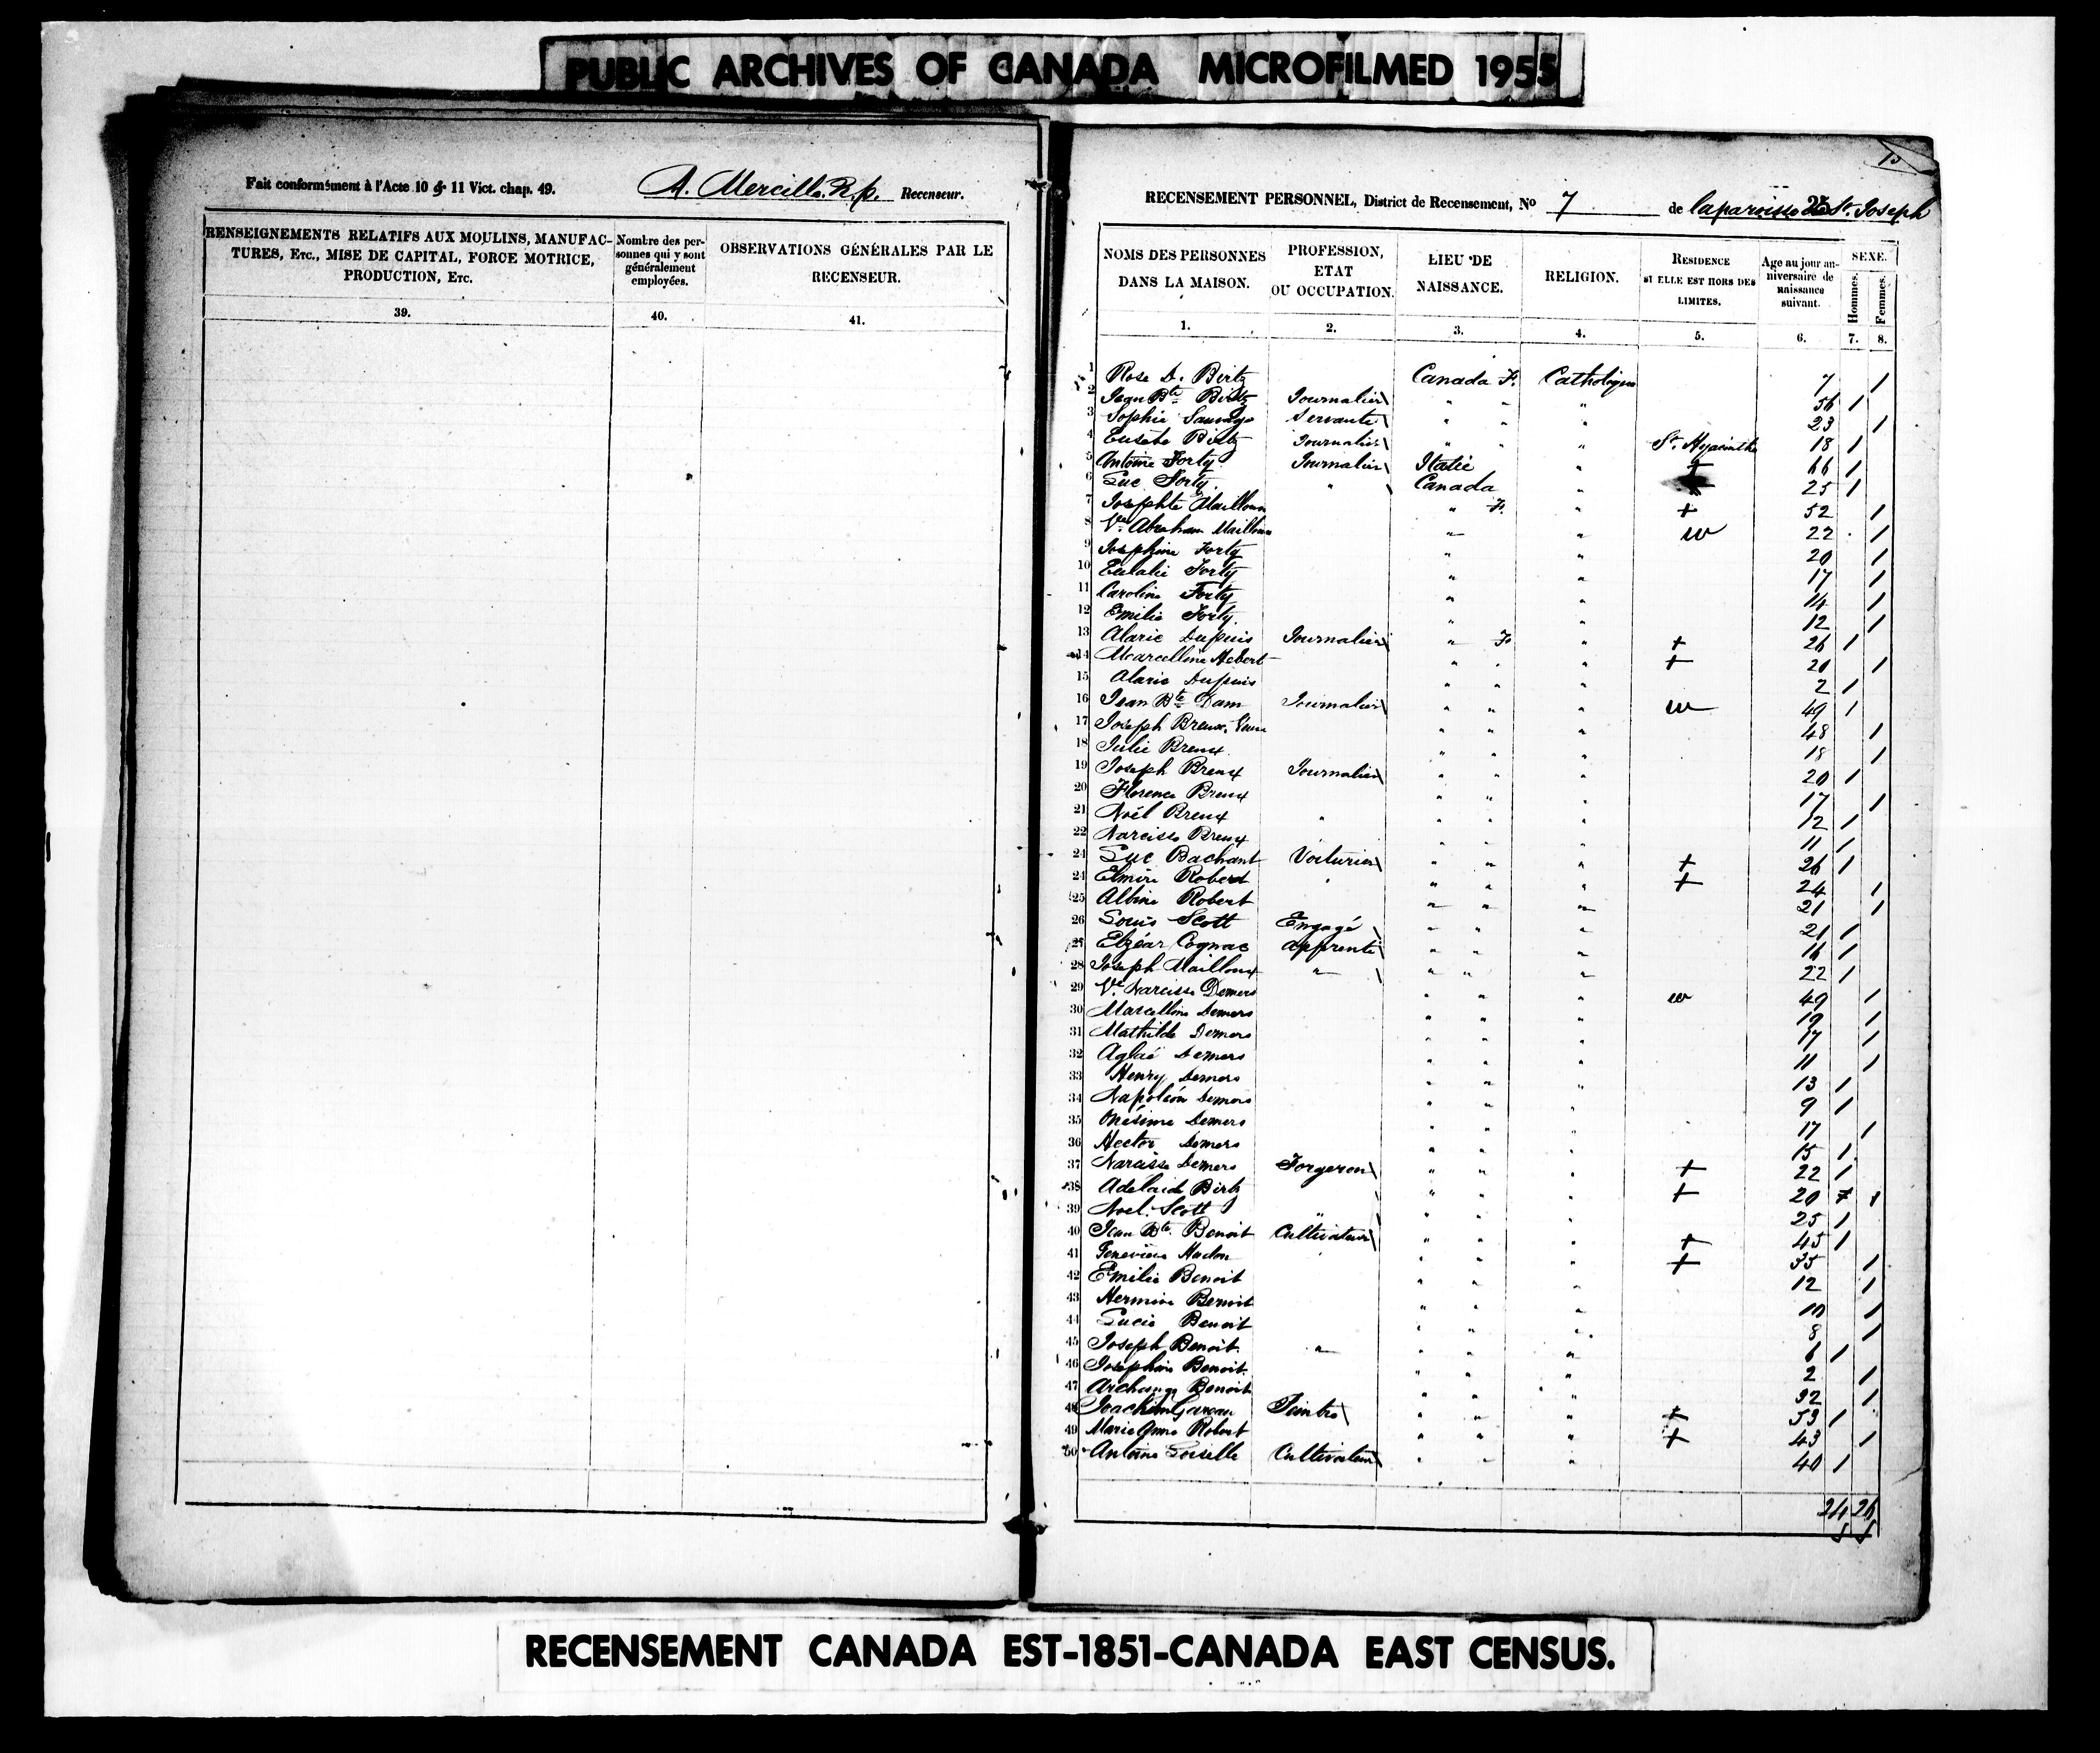 PUBLIC ARCHIVES OF CANADA MICROFILMED 1955
Fait conformément à l'Acte 10 & 11 Vict. chap. 49. A. Mercille R.p. Recenseur.
RENSEIGNEMENTS RELATIFS AUX MOULINS, MANUFAC-
TURES, Etc., MISE DE CAPITAL, FORCE MOTRICE,
PRODUCTION, Etc.
Nombre des per-
sonnes qui y sont
généralement
employées.
OBSERVATIONS GÉNÉRALES PAR LE
RECENSEUR.
39. 40. 41.
RECENSEMENT PERSONNEL, District de Recensement, No 7 de la paroisse St. Joseph
NOMS DES PERSONNES
DANS LA MAISON.
PROFESSION,
ETAT
OU OCCUPATION.
LIEU DE
NAISSANCE.
RELIGION.
RESIDENCE
SI ELLE EST HORS DES
LIMITES.
Age au jour an-
niversaire de
naissance
suivant.
SEXE.
Hommes.
Femmes.
1. 2. 3. 4. 5. 6. 7. 8.
1 Rose D. Birtz Canada F. Catholique 7 1
2 Jean Bte Birtz Journalier " " " 56 1
3 Sophie Sauvage Servante " " " 23 1
4 Eusèbe Birtz Journalier " " " St. Hyacinthe 18 1
5 Antoine Forty Journalier Italie " + 66 1
6 Luc Forty " Canada " 25 1
7 Josephte Mailloux " F. " + 52 1
8 Ve Abraham Mailloux " " w 22 1
9 Josephine Forty " " 20 1
10 Eulalie Forty " " 17 1
11 Caroline Forty " " 14 1
12 Emilie Forty " " 12 1
13 Alaric Dupuis Journalier " F. " + 26 1
14 Marcelline Hebert " " " + 20 1
15 Alaric Dupuis " " " 2 1
16 Jean Bte Dam Journalier " " " w 49 1
17 Joseph Breux, " " " 48 1
18 Julie Breux " " " 18 1
19 Joseph Breux Journalier " " " 20 1
20 Florence Breux " " " 17 1
21 Noël Breux " " " " 12 1
22 Narcisse Breux " " " 11 1
24 Luc Bachant Voiturier " " " + 26 1
24 Elmire Robert " " " " + 24 1
25 Albine Robert " " " 21 1
26 Louis Scott Engagé " " " 21 1
27 Elzéar Cognac apprenti " " " 16 1
28 Joseph Mailloux " " " " 22 1
29 Ve Narcisse Demers " " " w 49 1
30 Marcelline Demers " " " 19 1
31 Mathilde Demers " " " 17 1
32 Aglaé Demers " " " 11 1
33 Henry Demers " " " 13 1
34 Napoléon Demers " " " 9 1
35 Onésime Demers " " " 17 1
36 Hector Demers " " " 15 1
37 Narcisse Demers Forgeron " " " + 22 1
38 Adelaide Birtz " " " + 20 1
39 Noel Scott " " " " 25 1
40 Jean Bte Benoit Cultivateur " " " + 45 1
41 Geneviève Hudon " " " + 35 1
42 Emilie Benoit " " " 12 1
43 Hermine Benoit " " " 10 1
44 Lucie Benoit " " " 8 1
45 Joseph Benoit " " " " 6 1
46 Josephine Benoit " " " 2 1
47 Archange Benoit " " " 32 1
48 Joachim Gareau Peintre " " " + 53 1
49 Marie Anne Robert " " " + 43 1
50 Antoine Loiselle Cultivateur " " " 40 1
24 26
RECENSEMENT CANADA EST-1851-CANADA EAST CENSUS.